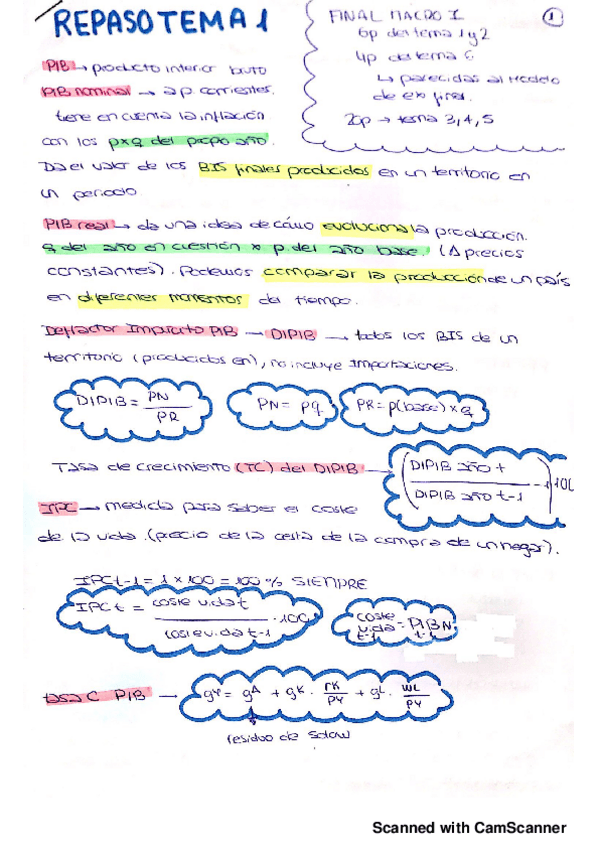 REPASO TEMA 1
FINAL MACRO I
1
6p del tema 1 y 2
4p del tema 6
↳ parecidas al modelo
de ex final.
20p → tema 3, 4, 5
PIB → producto interior bruto
PIB nominal → a p. corrientes.
tiene en cuenta la inflación
con los pxq del propio año.
Da el valor de los B/S finales producidos en un territorio en
un periodo
PIB real → da una idea de cómo evoluciona la producción.
q del año en cuestión x p. del año base. (Δ precios
constantes). Podemos comparar la producción de un país
en diferentes momentos de tiempo.
Deflactor Implícito PIB → DIPIB → todos los B/S de un
territorio (producidos en), no incluye importaciones.
DIPIB = PN / PR
PN = pq
PR = p(base) x q
Tasa de crecimiento (TC) del DIPIB → (DIPIB año t / DIPIB año t-1 - 1) 100
IPC → medida para saber el coste
de la vida. (precio de la cesta de la compra de un hogar).
IPC t-1 = 1 x 100 = 100 % SIEMPRE
IPC t = coste vida t / coste vida t-1 · 100
coste vida t-1 = PIB N t-1
tasa C PIB → gY = gA + gK · rK / PY + gL · WL / PY
residuo de Solow
Scanned with CamScanner